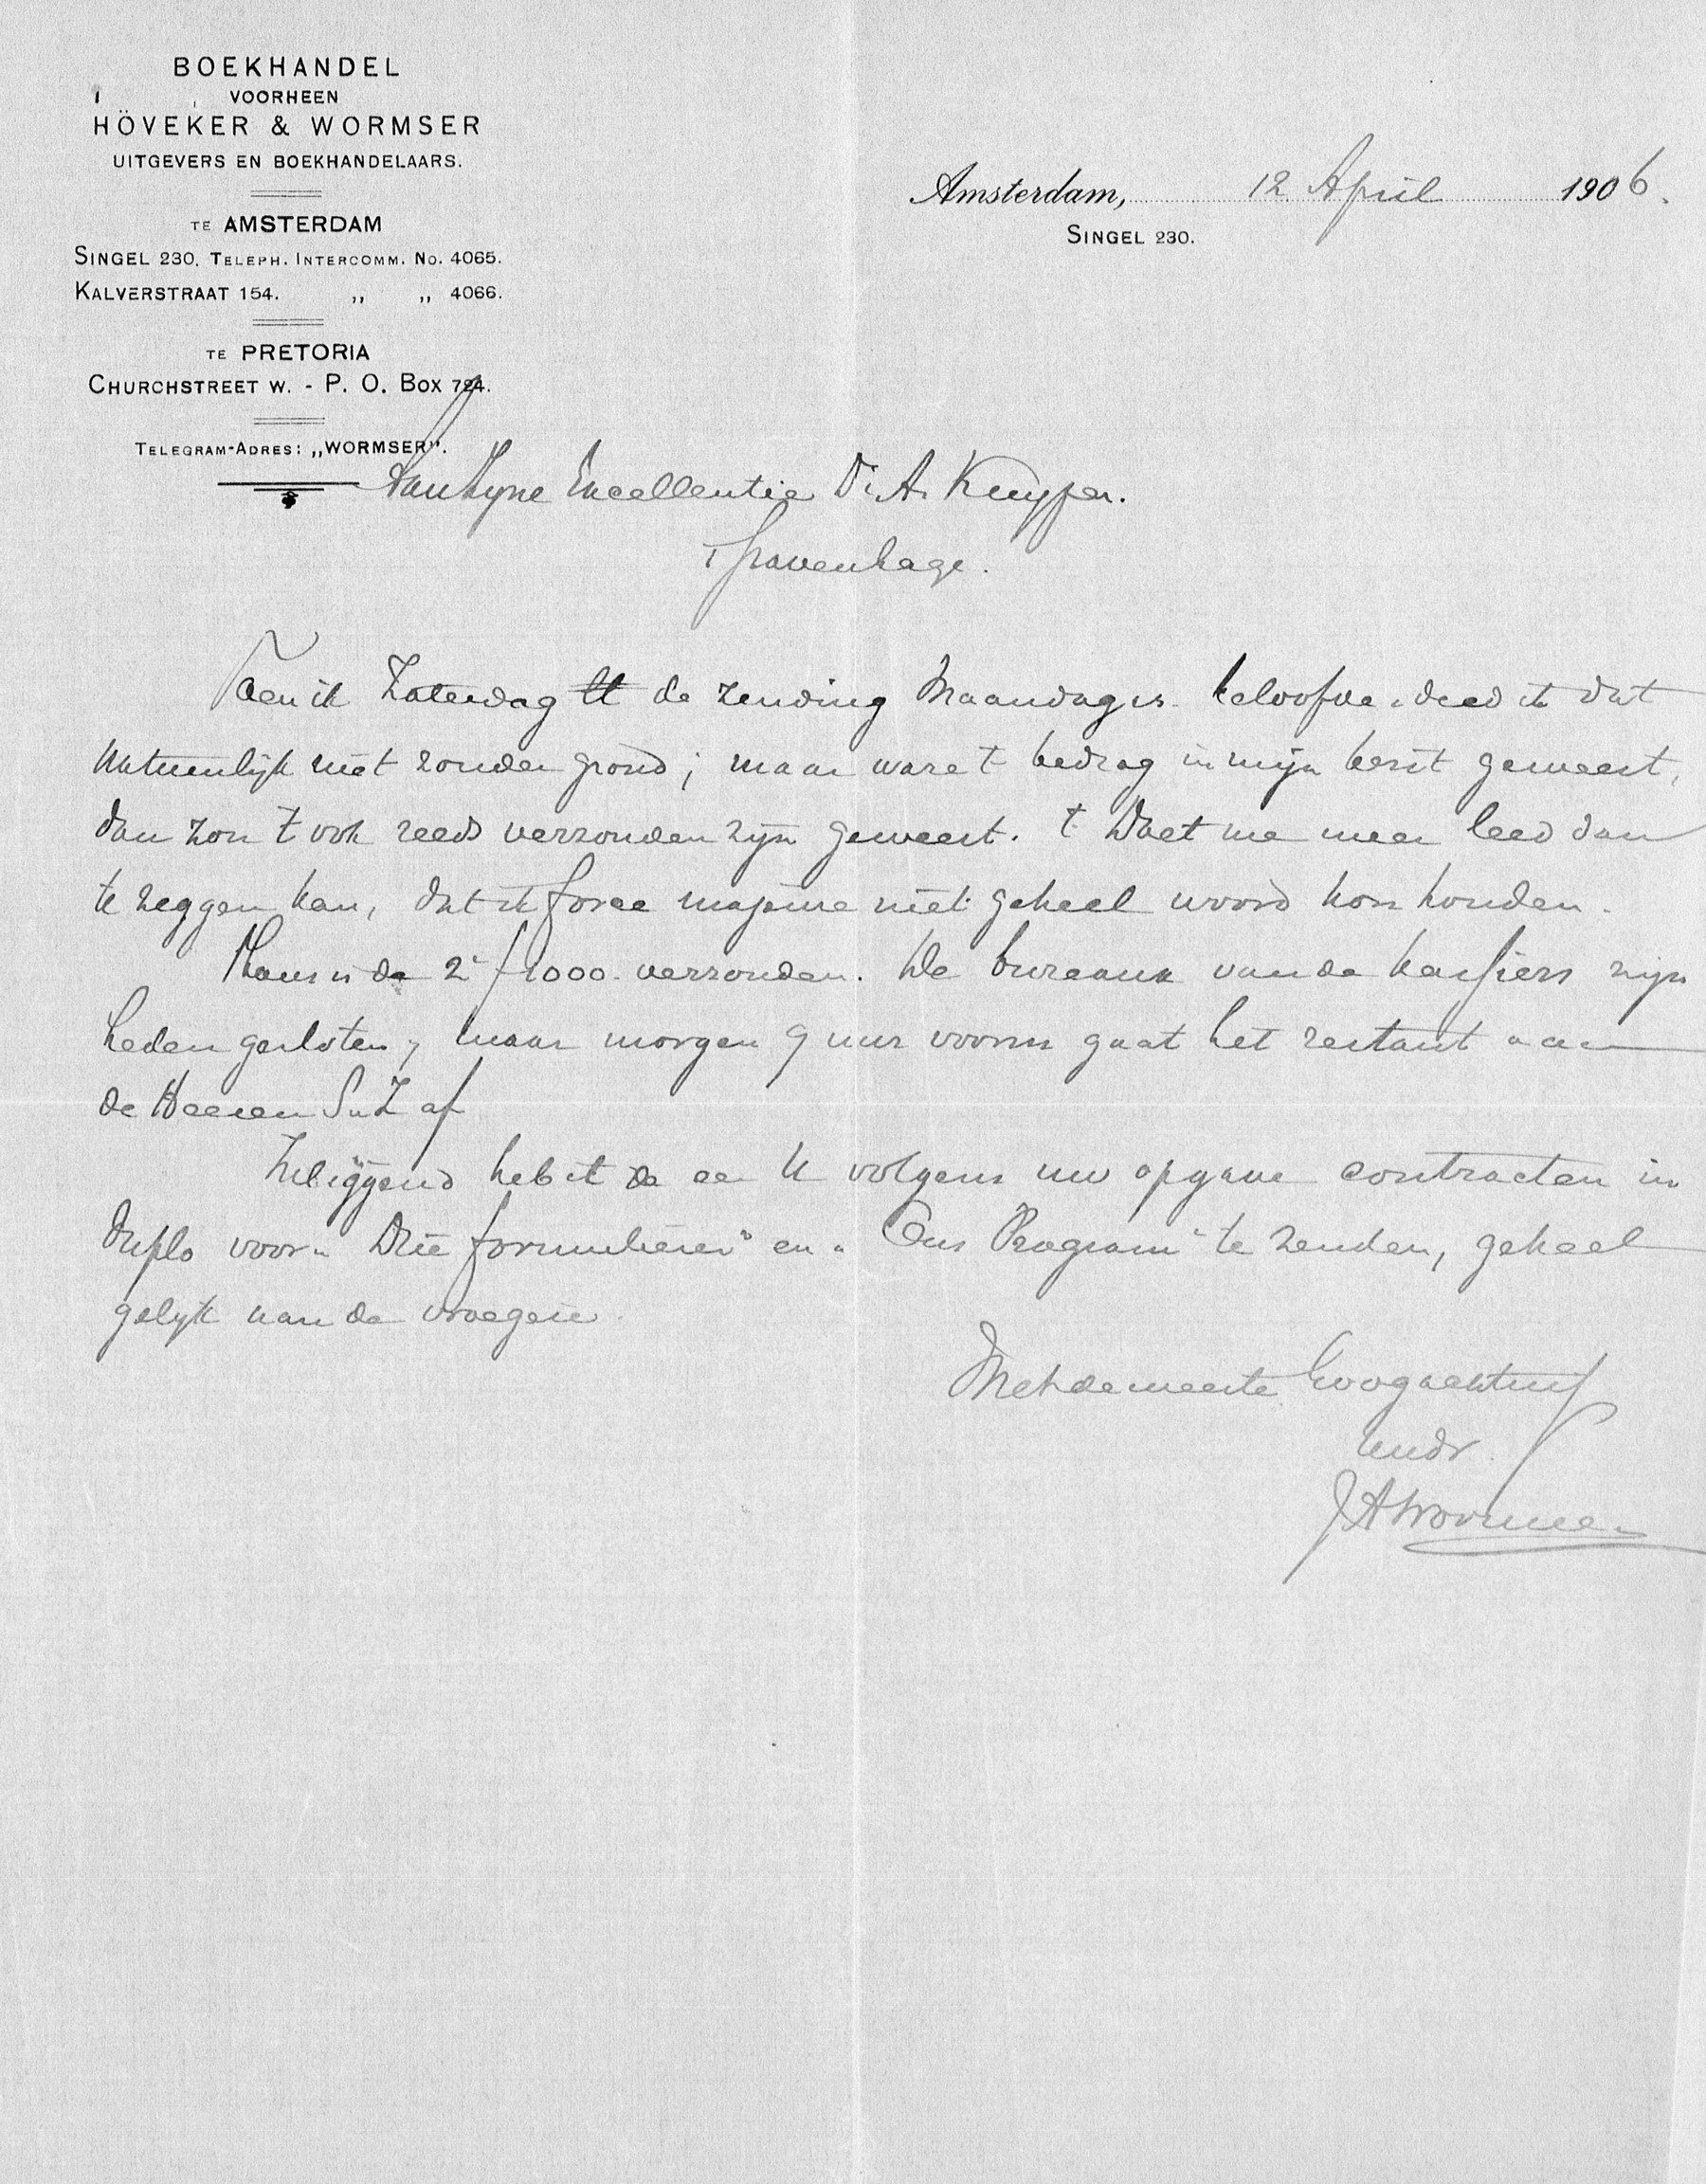 BOEKHANDEL
VOORHEEN
HÖVEKER & WORMSER
UITGEVERS EN BOEKHANDELAARS.
TE AMSTERDAM
SINGEL 230, TELEPH. INTERCOMM. No. 4065.
KALVERSTRAAT 154. „ „ 4066.
TE PRETORIA
CHURCHSTREET W. - P. O. BOX 724.
TELEGRAM-ADRES: „WORMSER".
Amsterdam, 12 April 1906.
SINGEL 230.
Aan Zyne Excellentie Dr. A. Kuyper.
's Gravenhage.
Toen ik Zaterdag de zending Maandag beloofde, deed ik dat
natuurlijk niet zonder grond; maar ware 't bedrag in mijn bezit geweest,
dan zou 't ook reeds verzonden zijn geweest. 't Doet me meer leed dan
te zeggen kan, dat ik force majeure niet geheel woord kon houden.
Thans is de 2e f 1000.- verzonden. De bureaux van de kassiers zijn
heden gesloten, maar morgen 9 uur voorm gaat het restant aan
de Heeren S. Z af
Inliggend heb ik de eer U volgens uw opgave contracten in
duplo voor „Drie formulieren" en „Ons Program" te zenden, geheel
gelijk aan de vroegere
Met de meeste hoogachting
Uwdr.
J A Wormser